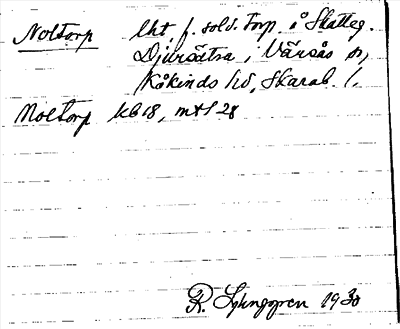 Noltorp lht, f. sold. torp å Skatteg.
Djursätra i Vårsås sn,
Kåkinds hd, Skarab. l.
Noltorp kb 18, mtl 28
R. Ljunggren 1930